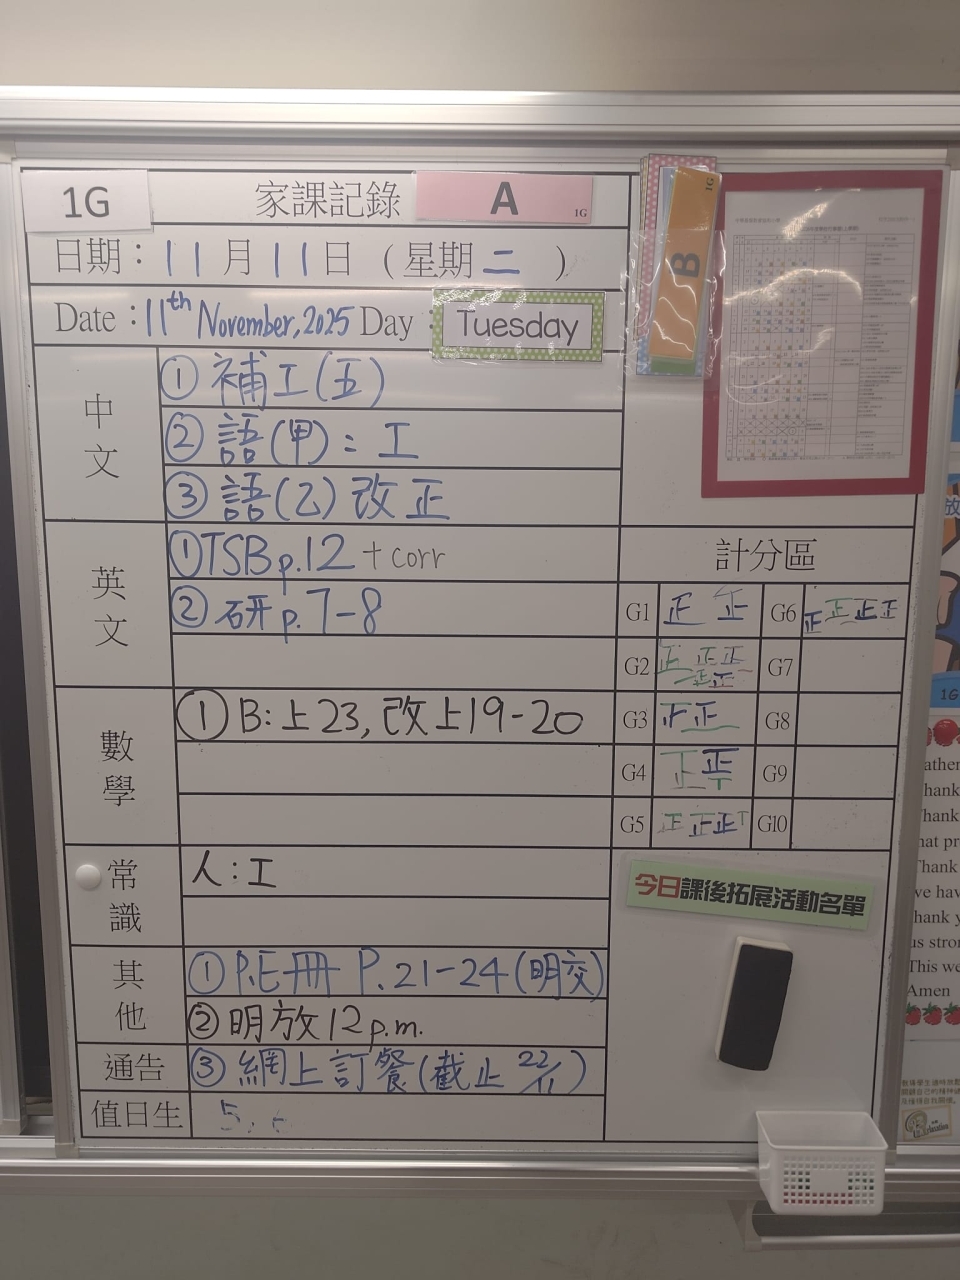 1G
家課記錄 A 1G
日期：11月11日（星期二）
Date：11th November, 2025 Day：Tuesday
B
1G
中文
①補工(五)
②語(甲)：工
③語(乙)改正
英文
①TSB p.12 + corr
②研 p.7-8
數學
①B:上23,改上19-20
常識
人:工
其他
①P.E冊 P.21-24(明交)
②明放12p.m.
通告
③網上訂餐(截止22/11)
值日生
5,
計分區
G1 正 正 G6 正 正 正 正
G2 正 正 正 正 正 G7
G3 正 正 G8
G4 正 正 G9
G5 正 正 正 G10
今日課後拓展活動名單
放
1G
This we
Amen